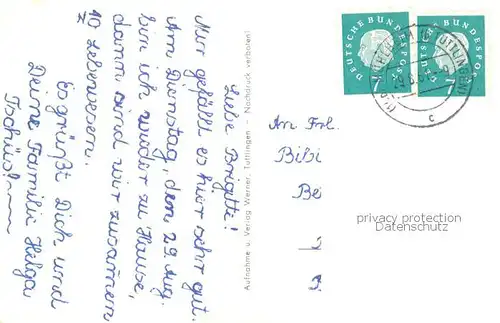 Liebe Brigitte!
Mir gefällt es hier sehr gut.
Am Dienstag, dem 29. Aug.
bin ich wieder zu Hause,
dann sind wir zusammen
10 Lebewesen.
Es grüßt Dich und
Deine Familie Helga
Tschüs!
Aufnahme u. Verlag Werner, Tuttlingen - Nachdruck verboten!
DEUTSCHE BUNDESPOST
7
DEUTSCHE BUNDESPOST
7
c
An Frl.
Bibi
Be
privacy protection
Datenschutz